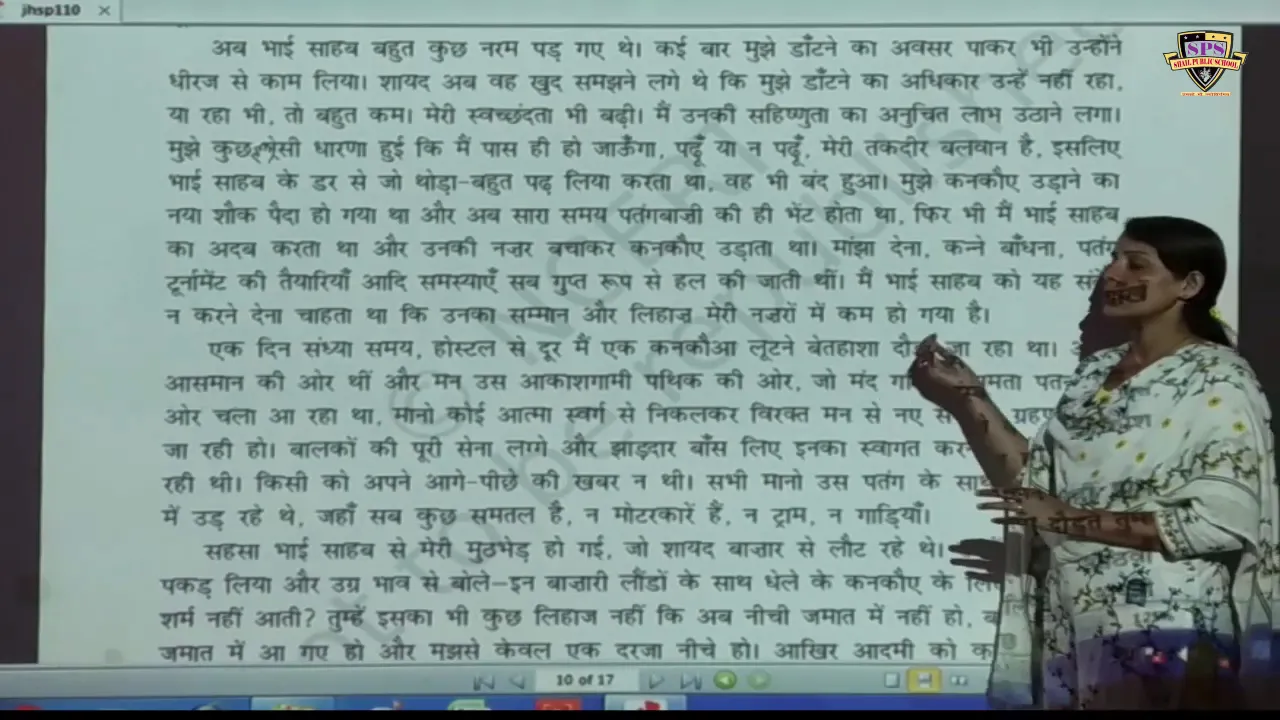 jhsp110
SPS
SHAIL PUBLIC SCHOOL
अब भाई साहब बहुत कुछ नरम पड़ गए थे। कई बार मुझे डाँटने का अवसर पाकर भी उन्होंने
धीरज से काम लिया। शायद अब वह खुद समझने लगे थे कि मुझे डाँटने का अधिकार उन्हें नहीं रहा,
या रहा भी, तो बहुत कम। मेरी स्वच्छंदता भी बढ़ी। मैं उनकी सहिष्णुता का अनुचित लाभ उठाने लगा।
मुझे कुछ ऐसी धारणा हुई कि मैं पास ही हो जाऊँगा, पढ़ूँ या न पढ़ूँ, मेरी तकदीर बलवान है, इसलिए
भाई साहब के डर से जो थोड़ा-बहुत पढ़ लिया करता था, वह भी बंद हुआ। मुझे कनकौए उड़ाने का
नया शौक पैदा हो गया था और अब सारा समय पतंगबाज़ी की ही भेंट होता था, फिर भी मैं भाई साहब
का अदब करता था और उनकी नज़र बचाकर कनकौए उड़ाता था। मांझा देना, कन्ने बाँधना, पतंग
टूर्नामेंट की तैयारियाँ आदि समस्याएँ सब गुप्त रूप से हल की जाती थीं। मैं भाई साहब को यह
न करने देना चाहता था कि उनका सम्मान और लिहाज़ मेरी नज़रों में कम हो गया है।
एक दिन संध्या समय, होस्टल से दूर मैं एक कनकौआ लूटने बेतहाशा जा रहा था।
आसमान की ओर थीं और मन उस आकाशगामी पथिक की ओर, जो मंद
ओर चला आ रहा था, मानो कोई आत्मा स्वर्ग से निकलकर विरक्त मन से नए
जा रही हो। बालकों की पूरी सेना लग्गे और झाड़दार बाँस लिए इनका स्वागत
रही थी। किसी को अपने आगे-पीछे की खबर न थी। सभी मानो उस पतंग के
में उड़ रहे थे, जहाँ सब कुछ समतल है, न मोटरकारें हैं, न ट्राम, न गाड़ियाँ।
सहसा भाई साहब से मेरी मुठभेड़ हो गई, जो शायद बाज़ार से लौट रहे थे।
पकड़ लिया और उग्र भाव से बोले–इन बाज़ारी लौंडों के साथ धेले के कनकौए के
शर्म नहीं आती? तुम्हें इसका भी कुछ लिहाज नहीं कि अब नीची जमात में नहीं हो,
जमात में आ गए हो और मझसे केवल एक दरजा नीचे हो। आखिर आदमी को
10 of 17